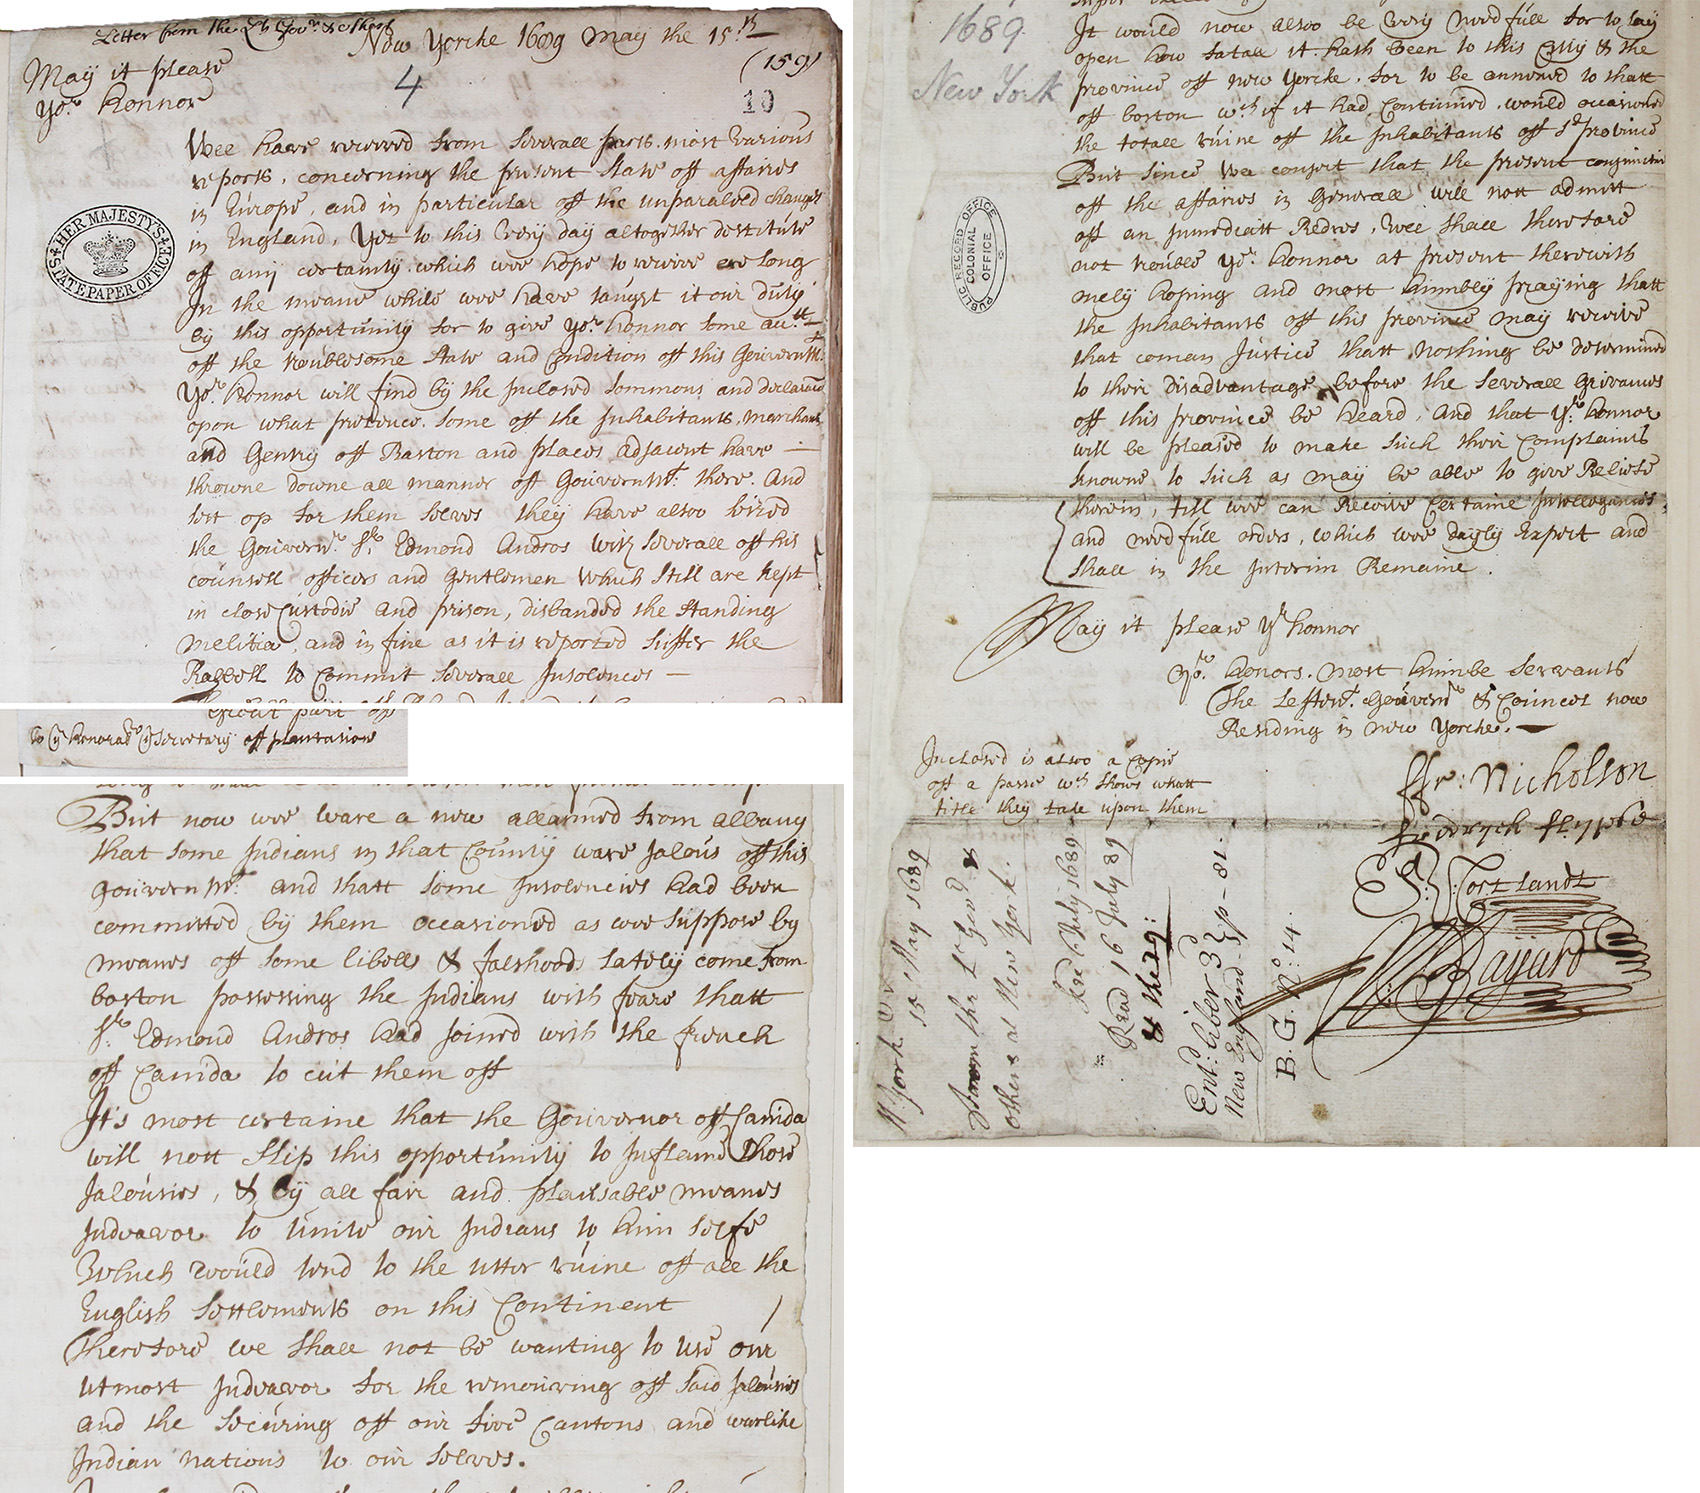 Letter from the Lt Govr & others
New Yorcke 1689 May the 15th
(159)
May it please
yor. honnor
4
10
Wee have receved from Severall parts most various
reports, concerning the present State off affaires
in Europe, and in particular off the unparaleld change
in England, Yet to this Very day altogether destitute
off any certainty which wee hope to receive ere long
In the meane while wee have taught it our duty
by this opportunity for to give yor. honnor some acctt
off the troublesome State and Condition off this Gouvernmt.
Yor. honnor will find by the Inclosed Sommons and declaracon
opon what pretence some off the Inhabitants, marchants
and Gentry off Baston and places adjacent have —
throwne downe all mannor off Gouvernmt. there. and
sett op for them selves they have altso seized
the Gouvernr. Sr. Edmond Andros with severall off his
counsell officers and Gentlemen which still are kept
in close Custodie and prison, disbanded the standing
melitia, and in fine as it is reported suffer the
Rabbell to Commit severall Insolences —
HER MAJESTY'S STATE PAPER OFFICE
to ye honorable ye Secretary off plantations
But now wee ware a new allarmed from albany
that some Indians in that County ware Jalous off this
gouvernmt. and thatt some Insolencies had been
committed by them occasioned as wee suppose by
meanes off some libells & falshoods lately come from
boston possessing the Indians with feare thatt
Sr. Edmond Andros had joined with the french
off Canida to cut them off
It's most certaine that the Gouvernor off Canida
will nott slip this opportunity to Inflame those
Jalousies, & by all fair and plausable meanes
Indeavor to Unite our Indians to him selfe
Which would tend to the utter ruine off all the
English Settlements on this Continent
Therefore we shall not be wanting to use our
utmost Indeavor for the remouving off said Jalousies
and the securing off our five Cantons and warlike
Indian nations to our selves.
1689
New York
It would now altso be very needfull for to lay
open how fatall it hath been to this Citty & the
province off new Yorcke, for to be annexed to thatt
off boston wch if it had Continued would occasioned
the totall ruine off the Inhabitants off sd province
But since Wee consert that the present conjunction
off the affaires in Generall will nott admitt
off an Immediatt Redres, Wee shall therefore
not trouble yor. honnor at present therewith
onely hoping and most humbly praying thatt
the Inhabitants off this province may receive
that coman Justice thatt nothing be determined
to their disadvantage before the severall Grivances
off this province be heard, and that yr. honnor
will be pleased to make such their Complaints
knowne to such as may be able to give Reliefe
therein, till wee can Receive Certaine Intelegences,
and needfull orders, which wee dayly Expect and
shall in the Interim Remaine.
PUBLIC RECORD OFFICE
COLONIAL OFFICE
May it please yr honnor
Yor. honors. most humbe servants
The Leftent. Gouvernr & Councel now
Residing in new Yorcke. —
Inclosed is altso a Copie
off a passe wch shows whatt
title they take upon them
ffr: Nicholson
fredryck flypse
S: V: Cortlandt
N: Bayard
N. York 15 May 1689
From the Lt Govr &
others at New York.
Recd July 1689
Read 16 July 89
& the 29:
Entd: Liber 3d
New England - Sp - 81.
B: G. No: 14.